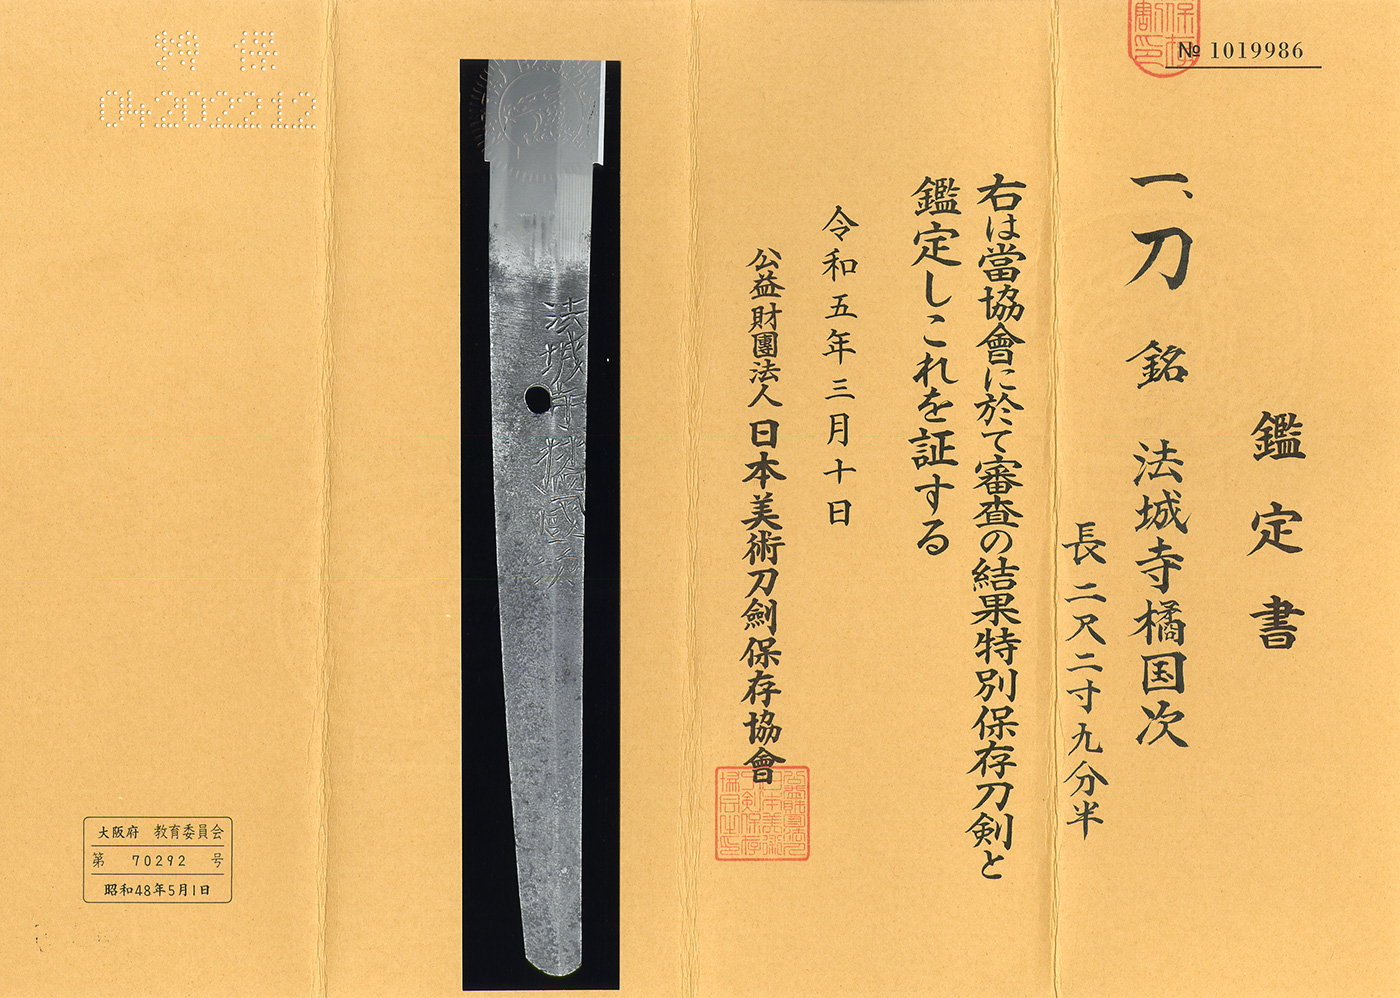 № 1019986
鑑定書
一、刀 銘 法城寺橘国次
長二尺二寸九分半
右は當協會に於て審査の結果特別保存刀剣と
鑑定しこれを証する
令和五年三月十日
公益財團法人 日本美術刀劍保存協會
法城寺橘國次
特保
04202212
大阪府 教育委員会
第 70292 号
昭和48年5月1日